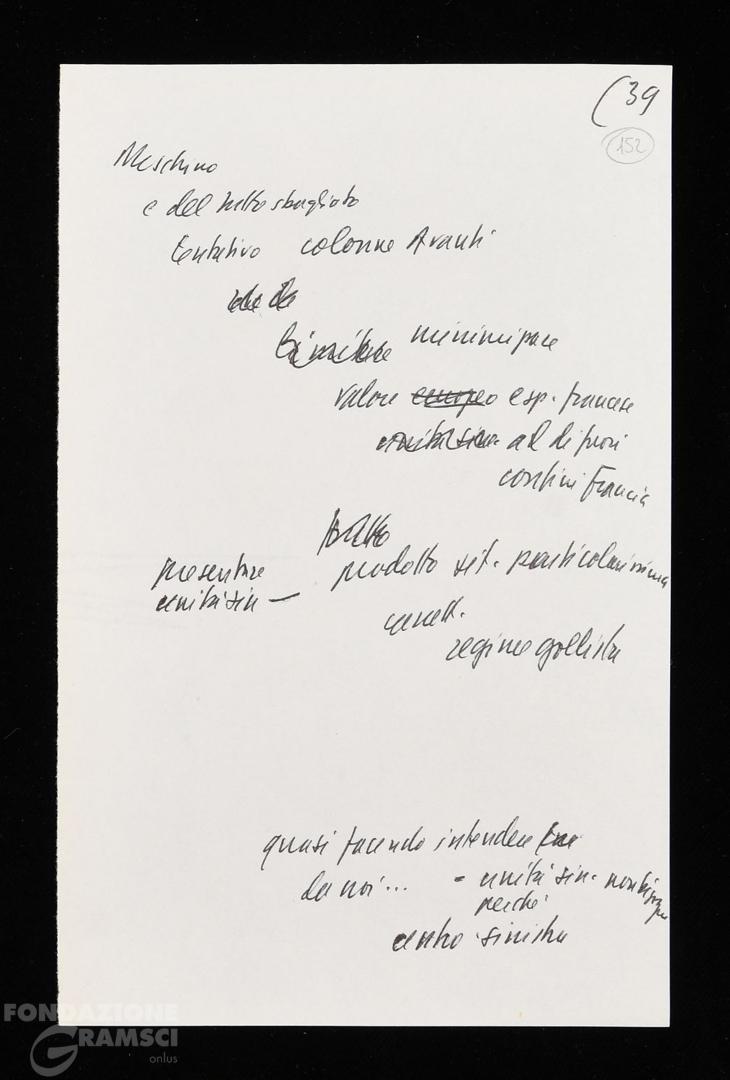 (39
152
Meschino
e del tutto sbagliato
tentativo colonne Avanti
minimizzare
valore europeo esp. francese
unità sin. al di fuori
confini Francia
tratto
presentare prodotto sit. particolarissima
unità sin —
caratt.
regime gollista
quasi facendo intendere che
da noi... = unità sin. non bisogno
perché
centro-sinistra
FONDAZIONE
GRAMSCI
onlus